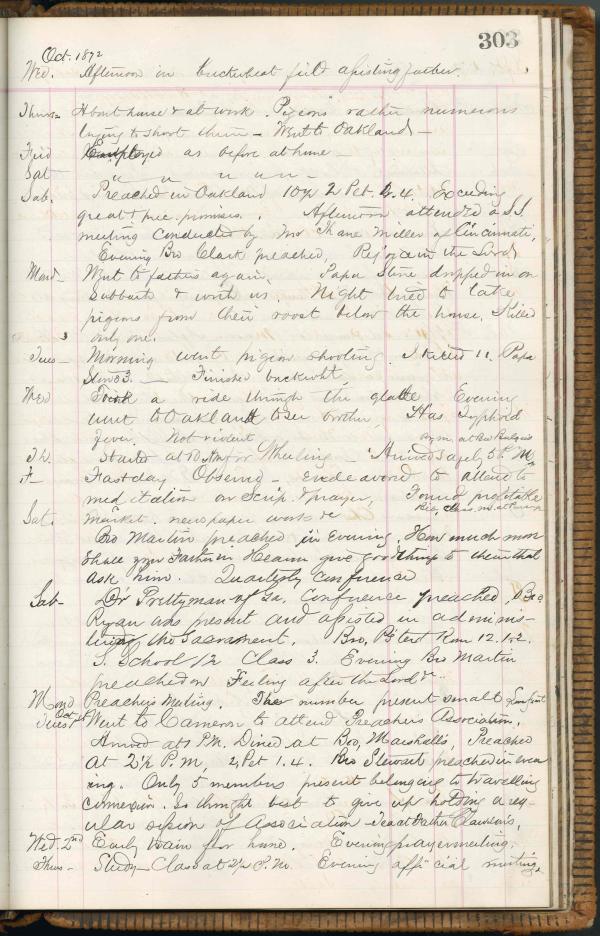 303
Oct. 1872
Wed. Afternoon in buckwheat field assisting father.
Thurs- About house & at work. Pigeons rather numerous
trying to shoot them - Went to Oakland -
Frid Employed as before at home -
Sat " " " " -
Sab. Preached in Oakland 10½ 2 Pet. 1.4. Exceeding
great & prec. promises. Afternoon attended a S.S.
meeting conducted by Mr Thane Miller of Cincinnati,
Evening Bro Clark preached, Rejoice in the Lord
Mond- Went to fathers again, Papa Stone dropped in on
& with us. Night tried to take
pigeons from their roost below the house, Killed
only one.
Tues- Morning went pigeon shooting. I killed 11. Papa
Stone 3. - Finished buckwht,
Wed Took a ride through the glade Evening
went to Oakland to see brother, Has Typhoid
fever. Not violent
Pr. m. at Bro
Th. Started at 10 Am for Wheeling - Arrived safely 5 P.M.
F- Fastday Observed - endeavored to attend to
meditation on Scrip. & prayer, Found profitable
Sat. Market. newspaper work &c
Bro Martin preached in Evening. How much more
shall your Father in Heaven give good things to them that
ask him. Quarterly Conference
Sab- Dr Prettyman of Conference preached, Bro
Ryan was present and assisted in adminis-
tering the Sacrament. Rom 12. 1&2.
S. School 1½ Class 3. Evening Bro Martin
preached on Feeling after the Lord &c
Mond Preachers Meeting. The number present small
Tues Oct 1st Went to Cameron to attend Preachers Association.
Arrived at 1 P.M. Dined at Bro, Marshalls, Preached
at 2½ P.M, 2 Pet 1.4. Bro Stewart preached in even
ing. Only 5 members present belonging to travelling
connexion. so thought best to give up holding a reg-
ular session of Association Tea at Father
Wed. 2nd Early train for home. Evening prayer meeting.
Thurs- Study- Class at 2½ P.M. Evening official meeting.